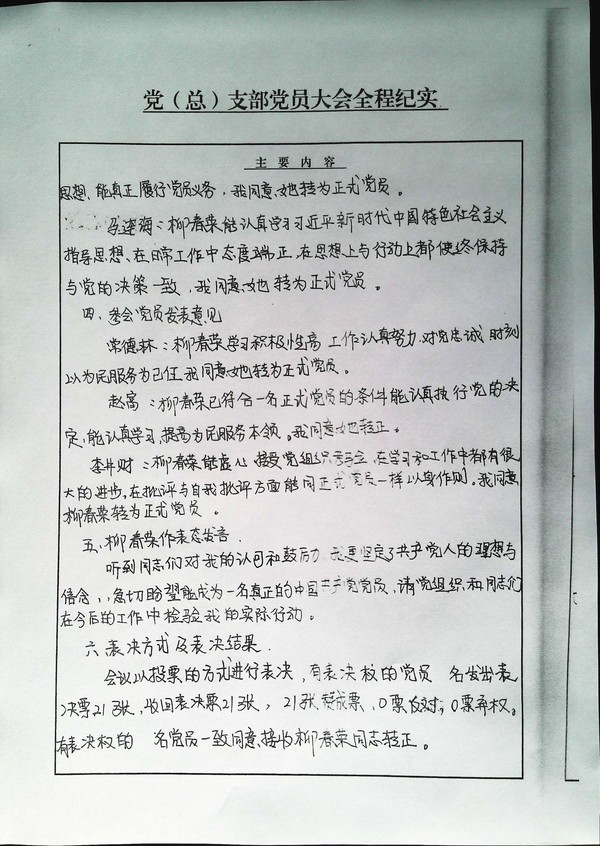 党（总）支部党员大会全程纪实
主要内容
思想、能真正履行党员义务，我同意她转为正式党员。
海：柳春荣能认真学习习近平新时代中国特色社会主义
指导思想、在日常工作中态度端正，在思想上与行动上都使终保持
与党的决策一致，我同意她转为正式党员。
四、参会党员发表意见
常德林：柳春荣学习积极性高 工作认真努力，对党忠诚 时刻
以为民服务为己任 我同意她转为正式党员。
赵富：柳春荣已符合一名正式党员的条件能认真执行党的决
定，能认真学习，提高为民服务本领。我同意她转正。
李井财：柳春荣能虚心接受党组织 在学习和工作中都有很
大的进步，在批评与自我批评方面能同正式党员一样以身作则。我同意
柳春荣转为正式党员。
五、柳春荣作表态发言.
听到同志们对我的认可和鼓励 我更坚定了共产党人的理想与
信念，急切盼望能成为一名真正的中国共产党党员，请党组织和同志们
在今后的工作中检验我的实际行动。
六 表决方式及表决结果.
会议以投票的方式进行表决，有表决权的党员 名发出表
决票21张，收回表决票21张，21张赞成票，0票反对；0票弃权。
有表决权的 名党员一致同意接收柳春荣同志转正。